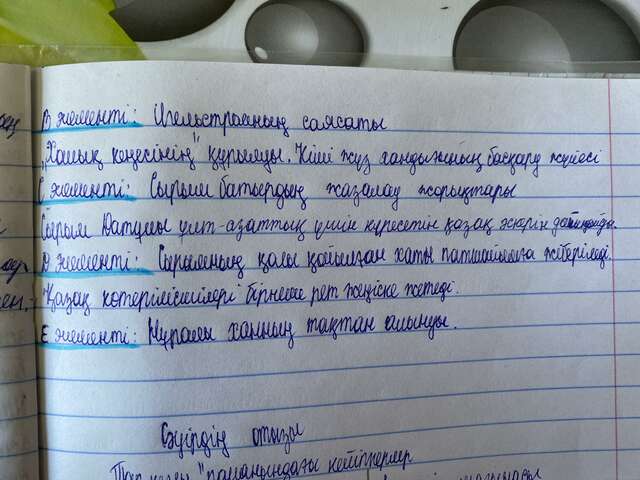 В элементі: Игельстромның саясаты
"Хандық кеңесінің" құрылуы. Кіші жүз хандығының басқару жүйесі
С элементі: Сырым батырдың жазалау жорықтары
Сырым Датұлы ұлт-азаттық үшін күресетін қазақ әскерін
D элементі: Сырымның қолы қойылған хаты патшайымға жіберіледі.
Қазақ көтерілісшілері бірнеше рет жеңіске жетеді.
Е элементі: Нұралы ханның тақтан алынуы.
Сәуірдің отызы
кейіпкерлер